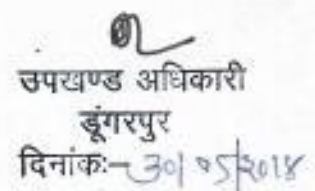 उपखण्ड अधिकारी
डूंगरपुर
दिनांकः- 30/05/2018